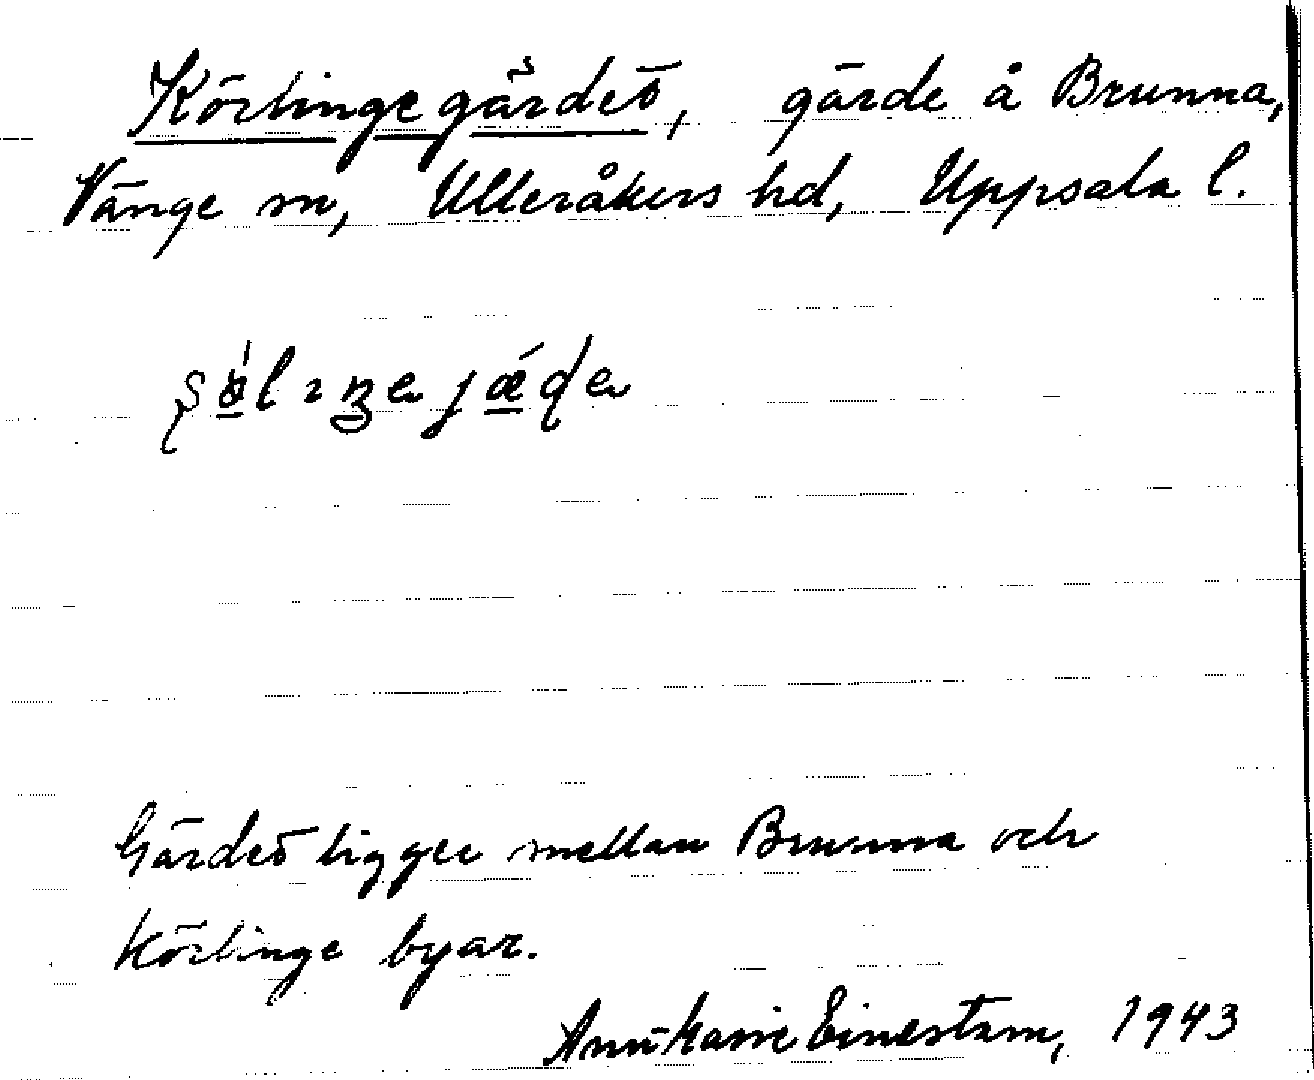 Körlingegärdet, gärde å Brunna,
Vänge sn, Ulleråkers hd, Uppsala l.
Gärdet ligger mellan Brunna och
Körlinge byar.
Ann-Marie Einestam, 1943